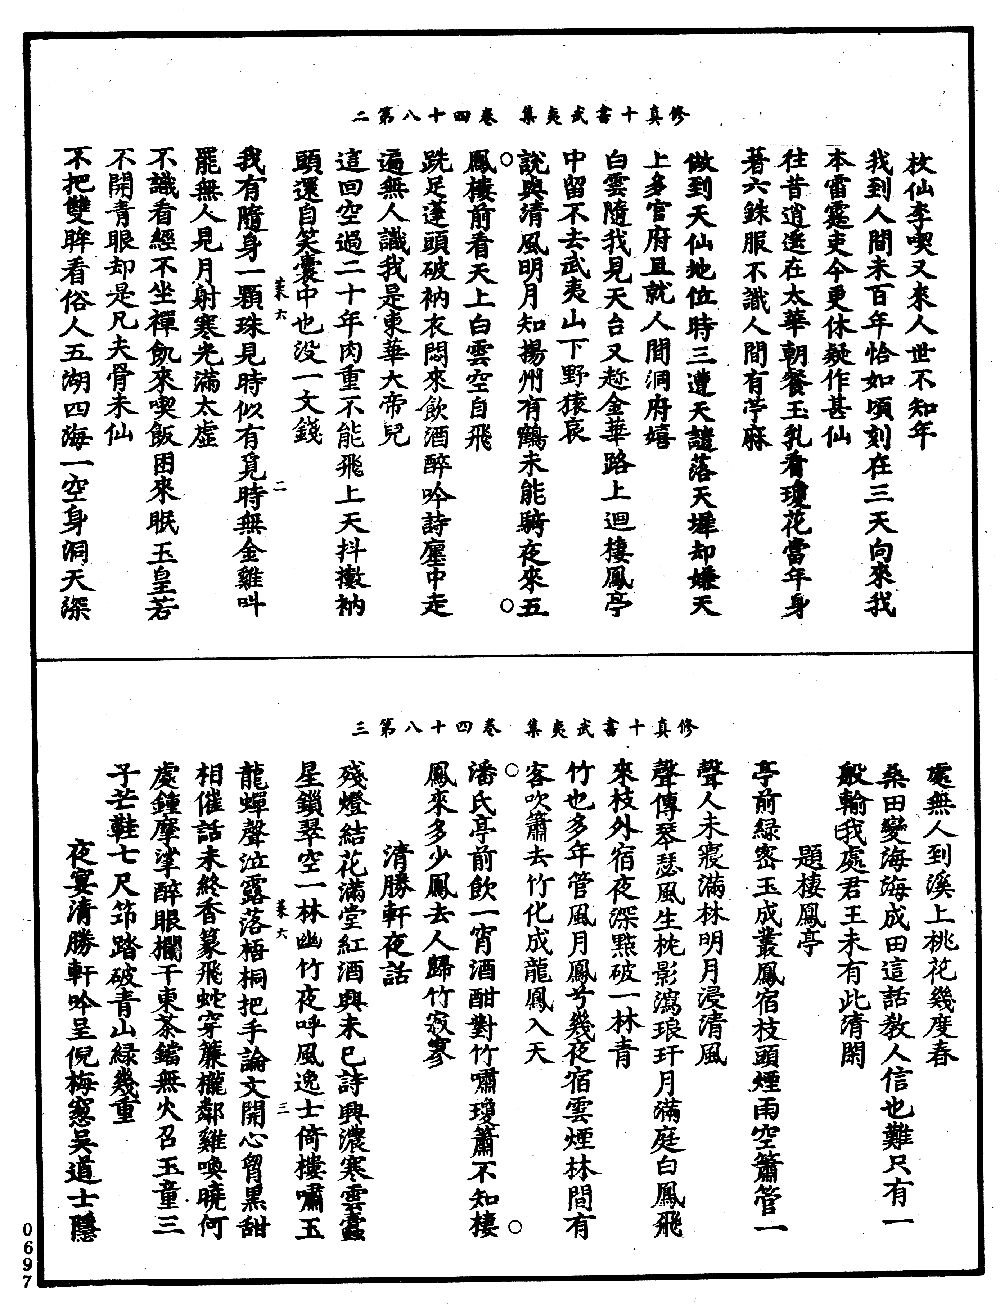 修真十書武夷集　卷四十八第二
枚仙李喫又來人世不知年
我到人間未百年恰如頃刻在三天向來我
本雷霆吏今更休疑作甚仙
往昔逍遙在太華朝餐玉乳看瓊花當年身
著六銖服不識人間有苧麻
做到天仙地位時三遭天譴落天墀却嫌天
上多官府且就人間洞府嬉
白雲隨我見天台又趂金華路上迴棲鳳亭
中留不去武夷山下野猿哀
說與清風明月知揚州有鶴未能騎夜來五
鳳樓前看天上白雲空自飛
跣足蓬頭破衲衣悶來飲酒醉吟詩塵中走
遍無人識我是東華大帝兒
這回空過二十年肉重不能飛上天抖擻衲
頭還自笑囊中也没一文錢
菓六　二
我有隨身一顆珠見時似有覓時無金雞叫
罷無人見月射寒光滿太虛
不識看經不坐禪飢來喫飯困來眠玉皇若
不開青眼却是凡夫骨未仙
不把雙眸看俗人五湖四海一空身洞天深
修真十書武夷集　卷四十八第三
處無人到溪上桃花幾度春
桑田變海海成田這話教人信也難只有一
般輸我處君王未有此清閑
題棲鳳亭
亭前綠密玉成叢鳳宿枝頭煙雨空簫管一
聲人未寢滿林明月浸清風
聲傳琴瑟風生枕影瀉琅玕月滿庭白鳳飛
來枝外宿夜深點破一林青
竹也多年管風月鳳兮幾夜宿雲煙林間有
客吹簫去竹化成龍鳳入天
潘氏亭前飲一宵酒酣對竹嘯瓊簫不知棲
鳳來多少鳳去人歸竹寂寥
清勝軒夜話
殘燈結花滿堂紅酒興未已詩興濃寒雲蠹
星鎖翠空一林幽竹夜呼風逸士倚樓嘯玉
菓六　三
龍蟬聲泣露落梧桐把手論文開心胷黑甜
相催話未終香篆飛蛇穿簾櫳鄰雞喚曉何
處鍾摩挲醉眼欄干東茶鐺無火召玉童三
子芒鞋七尺笻踏破青山綠幾重
夜宴清勝軒吟呈倪梅窻吳道士隱
0697